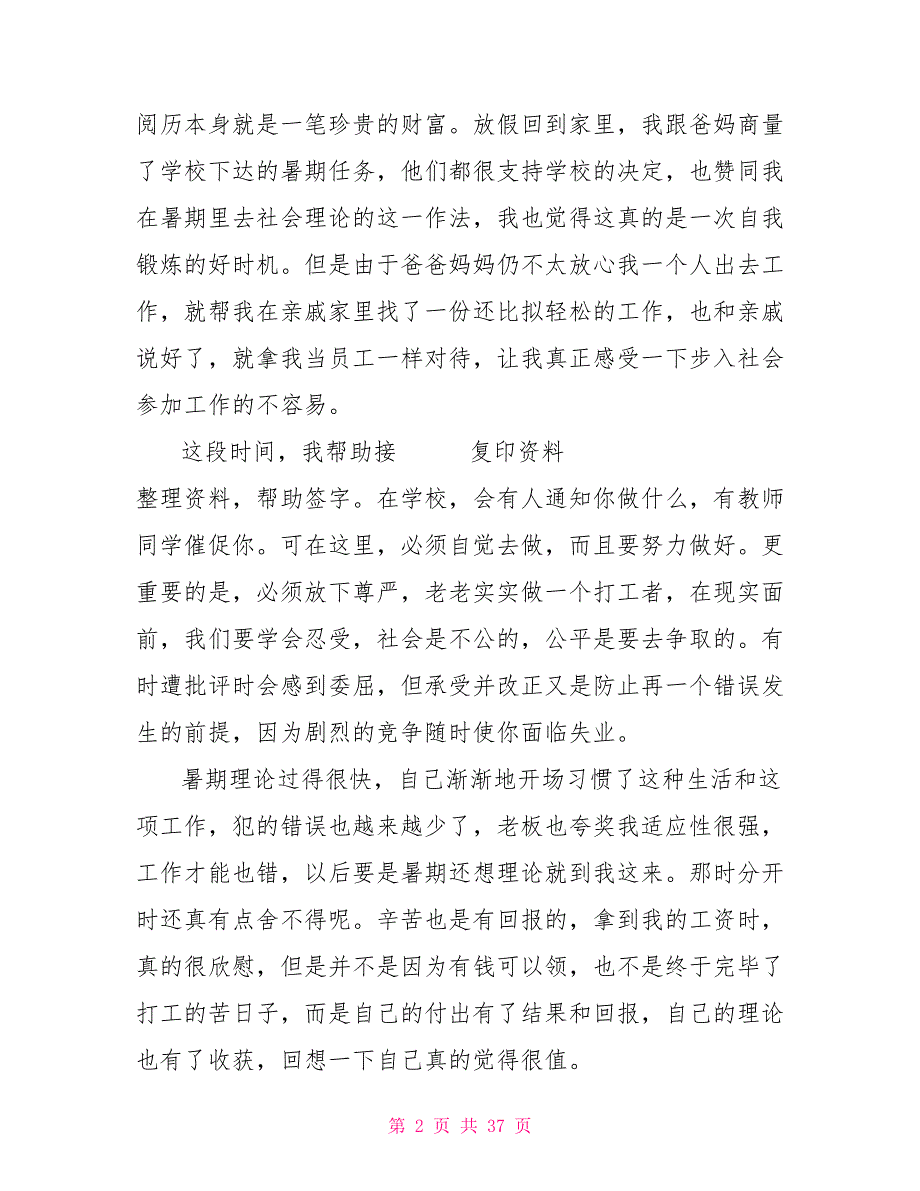 阅历本身就是一笔珍贵的财富。放假回到家里，我跟爸妈商量
了学校下达的暑期任务，他们都很支持学校的决定，也赞同我
在暑期里去社会理论的这一作法，我也觉得这真的是一次自我
锻炼的好时机。但是由于爸爸妈妈仍不太放心我一个人出去工
作，就帮我在亲戚家里找了一份还比拟轻松的工作，也和亲戚
说好了，就拿我当员工一样对待，让我真正感受一下步入社会
参加工作的不容易。
这段时间，我帮助接 复印资料
整理资料，帮助签字。在学校，会有人通知你做什么，有教师
同学催促你。可在这里，必须自觉去做，而且要努力做好。更
重要的是，必须放下尊严，老老实实做一个打工者，在现实面
前，我们要学会忍受，社会是不公的，公平是要去争取的。有
时遭批评时会感到委屈，但承受并改正又是防止再一个错误发
生的前提，因为剧烈的竞争随时使你面临失业。
暑期理论过得很快，自己渐渐地开场习惯了这种生活和这
项工作，犯的错误也越来越少了，老板也夸奖我适应性很强，
工作才能也错，以后要是暑期还想理论就到我这来。那时分开
时还真有点舍不得呢。辛苦也是有回报的，拿到我的工资时，
真的很欣慰，但是并不是因为有钱可以领，也不是终于完毕了
打工的苦日子，而是自己的付出有了结果和回报，自己的理论
也有了收获，回想一下自己真的觉得很值。
第 2 页 共 37 页